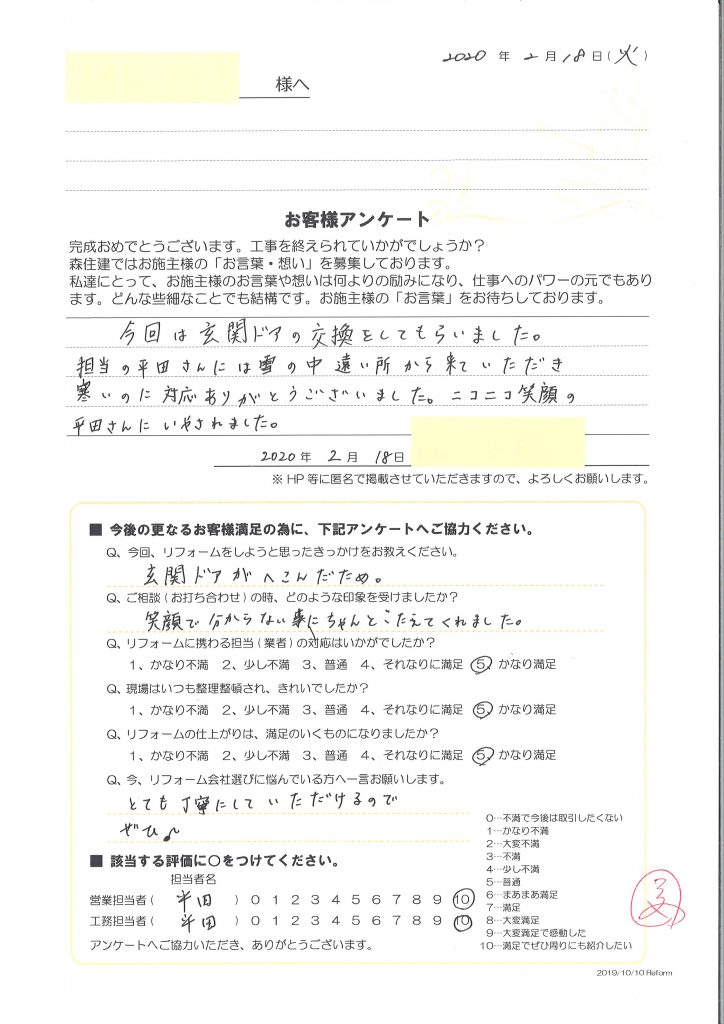 2020 年 2 月 18 日(火)
様へ
お客様アンケート
完成おめでとうございます。工事を終えられていかがでしょうか？
森住建ではお施主様の「お言葉・想い」を募集しております。
私達にとって、お施主様のお言葉や想いは何よりの励みになり、仕事へのパワーの元でもあり
ます。どんな些細なことでも結構です。お施主様の「お言葉」をお待ちしております。
今回は玄関ドアの交換をしてもらいました。
担当の平田さんには雪の中遠い所から来ていただき
寒いのに対応ありがとうございました。ニコニコ笑顔の
平田さんにいやされました。
2020 年 2 月 18 日
※ HP 等に匿名で掲載させていただきますので、よろしくお願いします。
■ 今後の更なるお客様満足の為に、下記アンケートへご協力ください。
Q、今回、リフォームをしようと思ったきっかけをお教えください。
玄関ドアがへこんだため。
Q、ご相談（お打ち合わせ）の時、どのような印象を受けましたか？
笑顔で分からない事にちゃんとこたえてくれました。
Q、リフォームに携わる担当（業者）の対応はいかがでしたか？
1、かなり不満 2、少し不満 3、普通 4、それなりに満足 5、かなり満足
Q、現場はいつも整理整頓され、きれいでしたか？
1、かなり不満 2、少し不満 3、普通 4、それなりに満足 5、かなり満足
Q、リフォームの仕上がりは、満足のいくものになりましたか？
1、かなり不満 2、少し不満 3、普通 4、それなりに満足 5、かなり満足
Q、今、リフォーム会社選びに悩んでいる方へ一言お願いします。
とても丁寧にしていただけるので
ぜひ♪
■ 該当する評価に○をつけてください。
担当者名
営業担当者（ 平田 ）0 1 2 3 4 5 6 7 8 9 10
工務担当者（ 平田 ）0 1 2 3 4 5 6 7 8 9 10
アンケートへご協力いただき、ありがとうございます。
0…不満で今後は取引したくない
1…かなり不満
2…大変不満
3…不満
4…少し不満
5…普通
6…まあまあ満足
7…満足
8…大変満足
9…大変満足で感動した
10…満足でぜひ周りにも紹介したい
2019/10/10 Reform